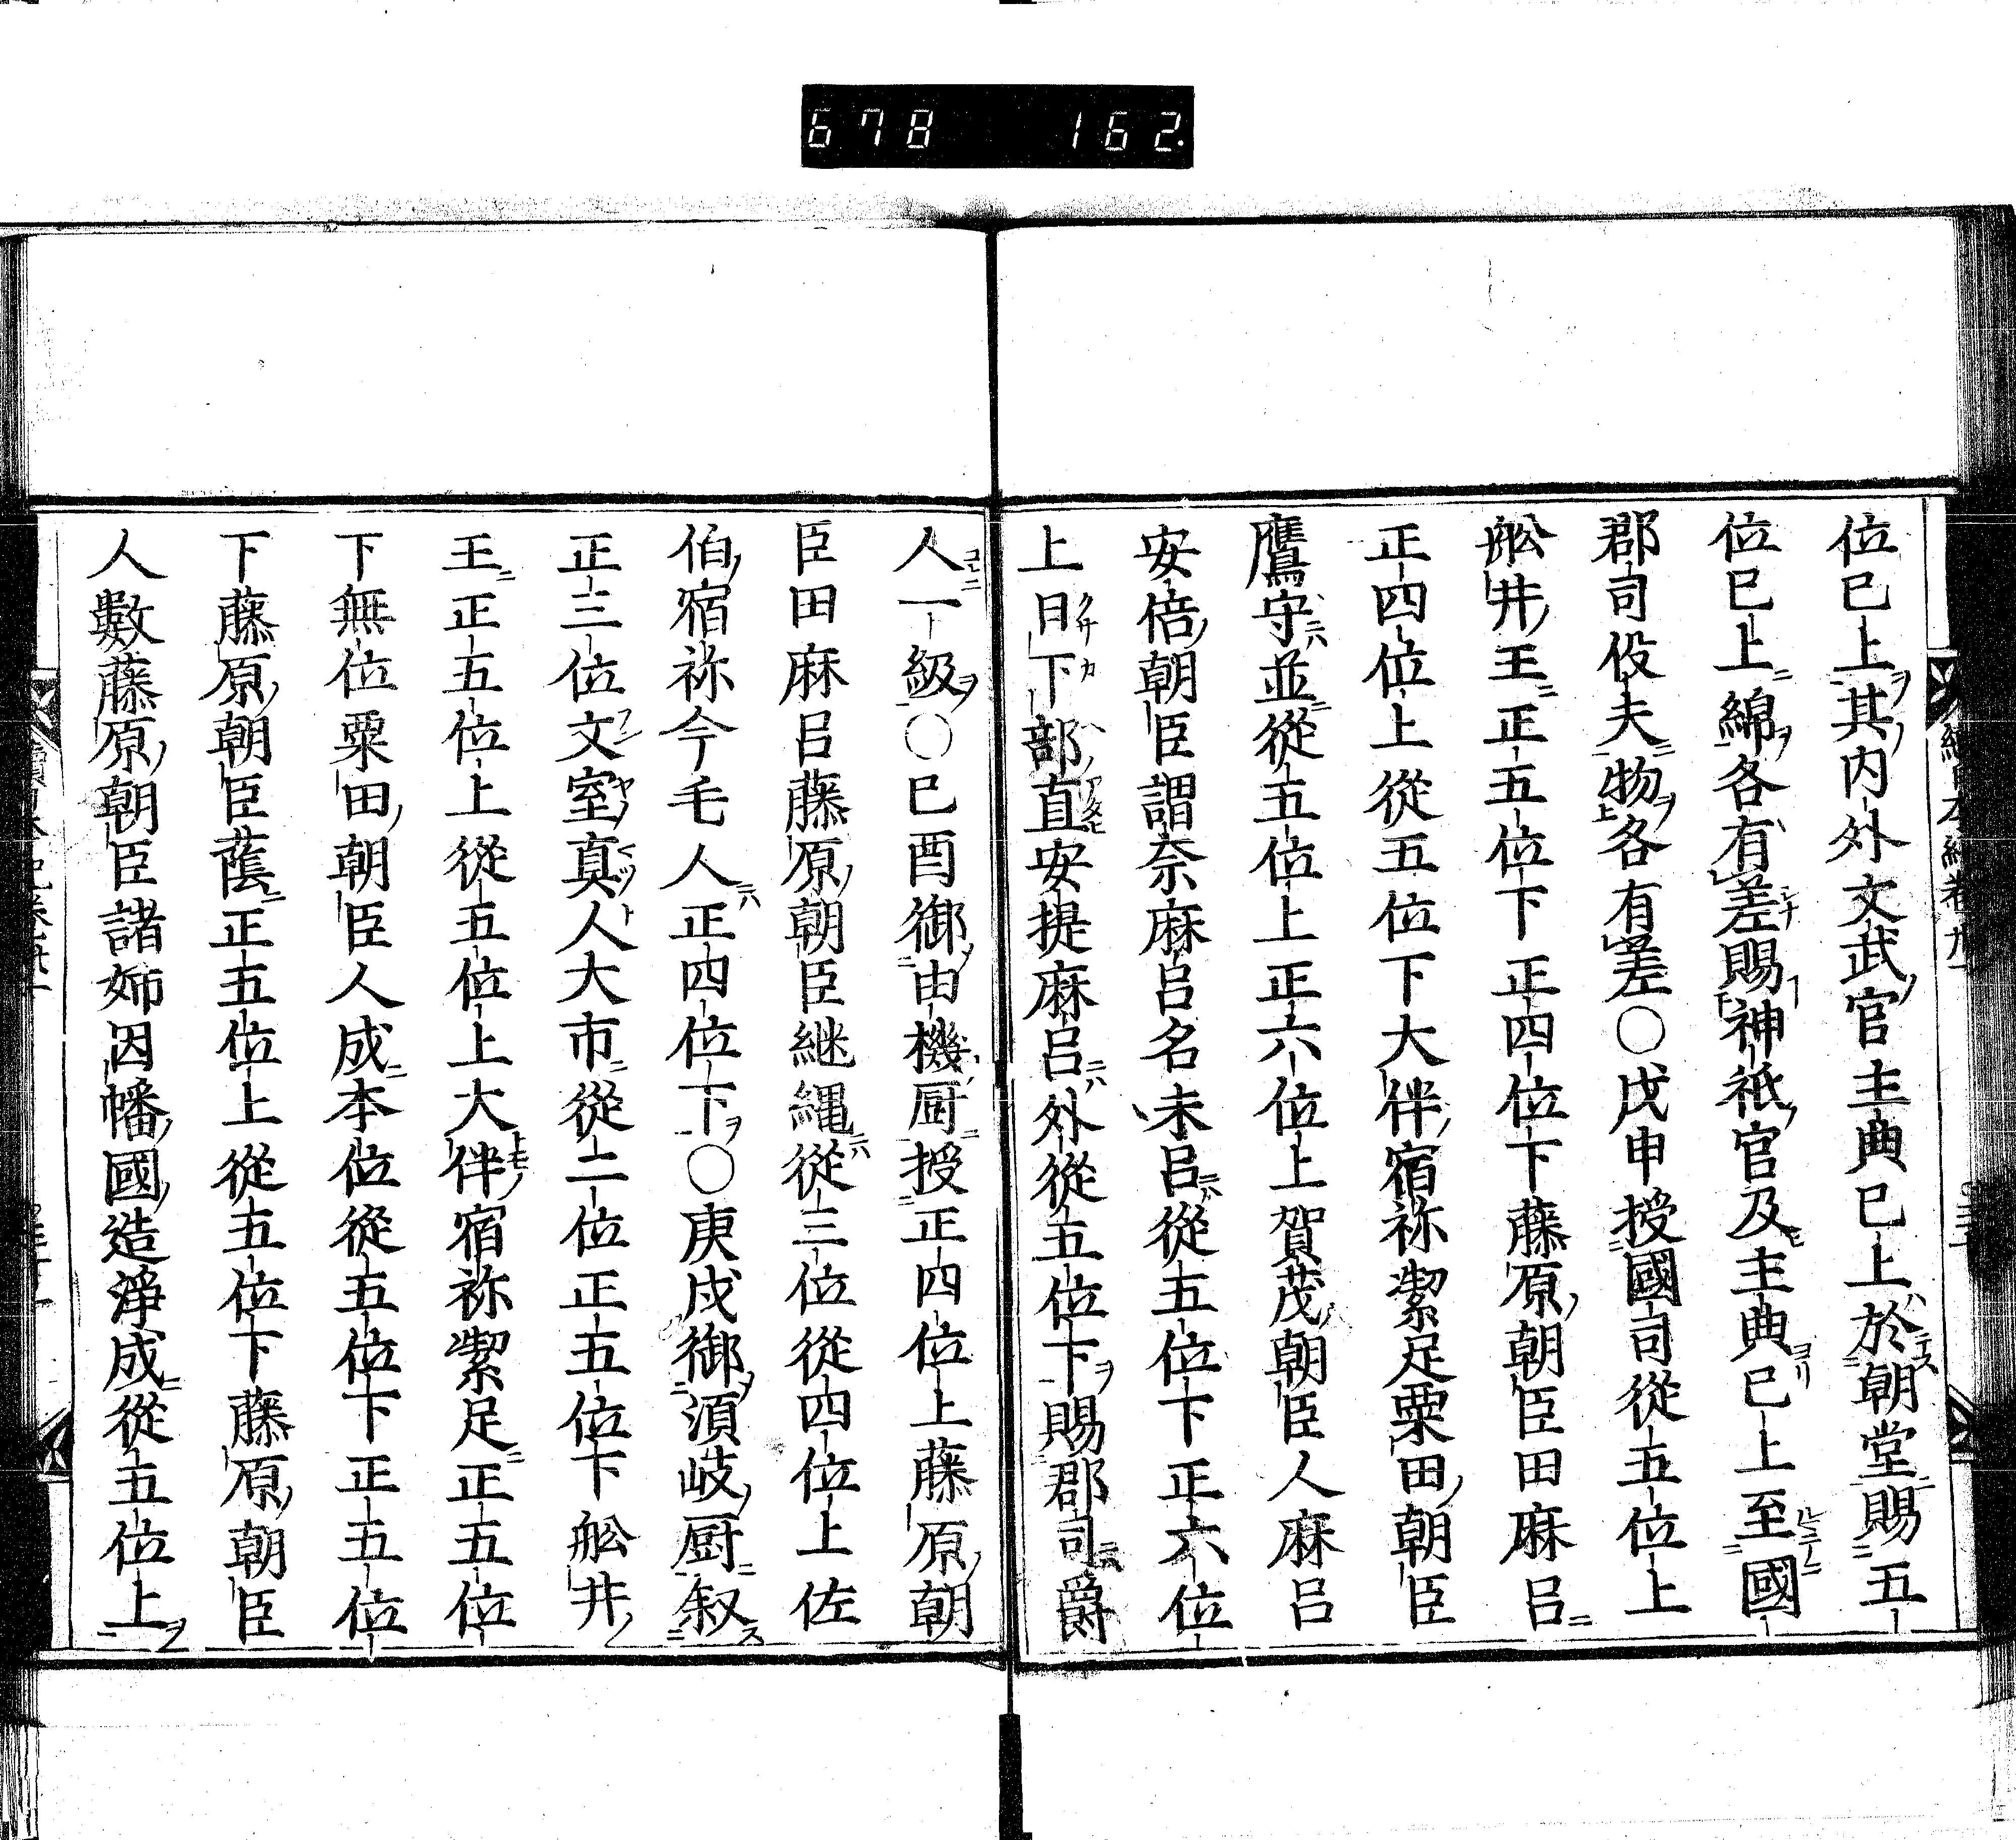 678 162.
位已上其内外文武官主典已上於朝堂賜五
位已上綿各有差賜神祇官及主典已上至國
郡司役夫物各有差○戊申授國司從五位上
舩井王正五位下正四位下藤原朝臣田麻呂
正四位上從五位下大伴宿祢潔足粟田朝臣
鷹守並從五位上正六位上賀茂朝臣人麻呂
安倍朝臣謂奈麻呂名未呂從五位下正六位
上日下部直安提麻呂外從五位下賜郡司爵
人一級○已酉御由機厨授正四位上藤原朝
臣田麻呂藤原朝臣継縄從三位從四位上佐
伯宿祢今毛人正四位下○庚戍御湏岐厨叙
正三位文室真人大市從二位正五位下舩井
王正五位上從五位上大伴宿祢潔足正五位
下無位粟田朝臣人成本位從五位下正五位
下藤原朝臣蔭正五位上從五位下藤原朝臣
人數藤原朝臣諸姉因幡國造淨成從五位上